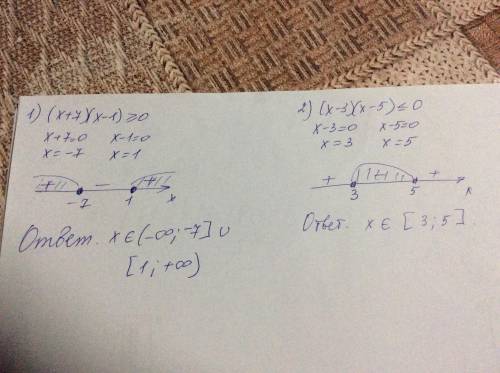 1) (x+7)(x-1) ≥ 0
x+7=0 x-1=0
x=-7 x=1
+ - +
-7 1 x
Ответ. x ∈ (-∞; -7] ∪
[1; +∞)
2) (x-3)(x-5) ≤ 0
x-3=0 x-5=0
x=3 x=5
+ - +
3 5 x
Ответ. x ∈ [3; 5].